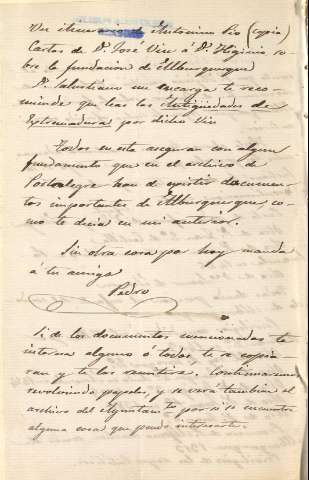 Antonino Pio (copia)
Cartas de D. José Viu á D. Higinio so-
bre la fundacion de Alburquerque
D. Salustiano me encarga te reco-
miende que leas las Antigüedades de
Extremadura por dicho Viu
Todos en esta aseguran con algun
fundamento que en el archivo de
Portoalegre han de existir documen-
tos importantes de Alburquerque co-
mo te decia en mi anterior.
Sin otra cosa por hoy manda
á tu amigo
Pedro
Si de los documentos mencionados te
interesa alguno ó todos te se copia-
ran y te los remitiera. Continuaremos
revolviendo papeles, y se verá tambien el
archivo del Ayuntamto por si se encuentra
alguna cosa que pueda interesarte.